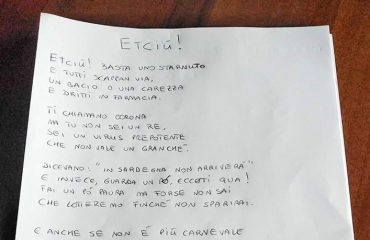 ETCIÚ!
ETCIÚ! BASTA UNO STARNUTO
E TUTTI SCAPPAN VIA,
UN BACIO O UNA CAREZZA
E DRITTI IN FARMACIA.
TI CHIAMANO CORONA
MA TU NON SEI UN RE,
SEI UN VIRUS PREPOTENTE
CHE NON VALE UN GRANCHÉ".
DICEVANO: "IN SARDEGNA NON ARRIVERÀ"
E INVECE, GUARDA UN PÓ, ECCOTI QUA!
FAI UN PÓ PAURA MA FORSE NON SAI
CHE LOTTEREMO FINCHÉ NON SPARIRAI.
E ANCHE SE NON É PIÙ CARNEVALE